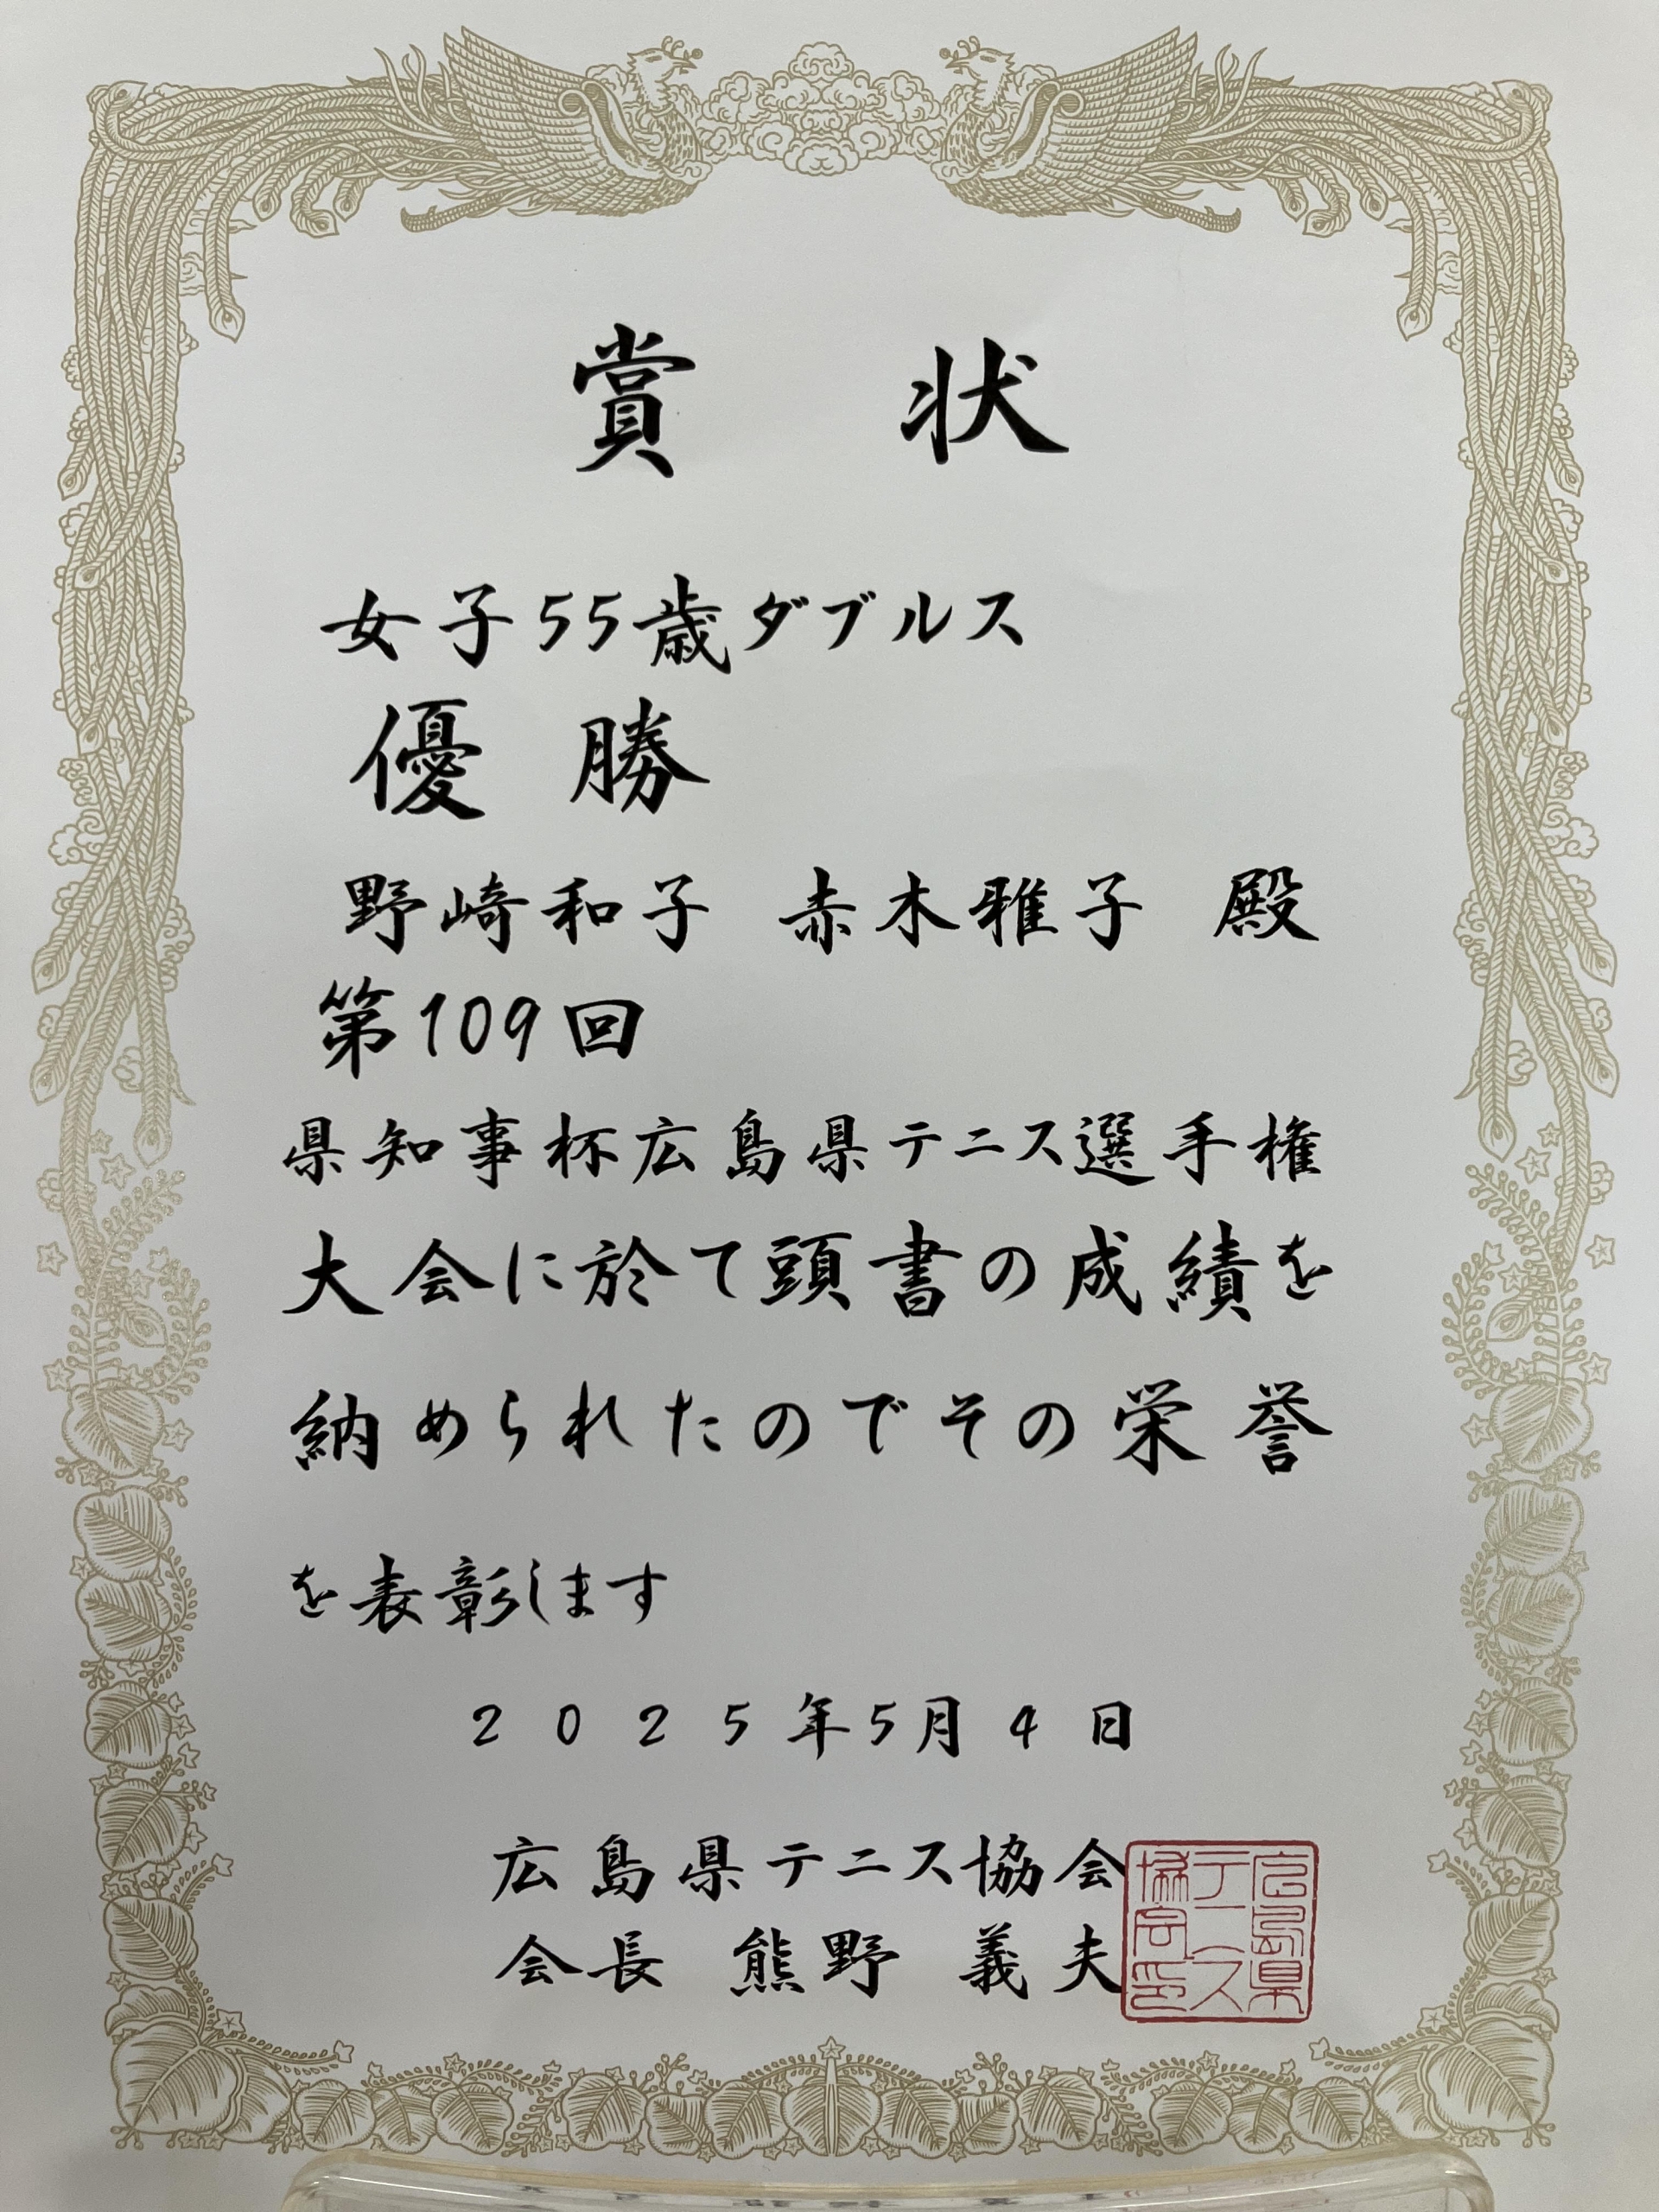 賞状
女子55歳ダブルス
優勝
野崎和子 赤木雅子 殿
第109回
県知事杯広島県テニス選手権
大会に於て頭書の成績を
納められたのでその栄誉
を表彰します
2025年5月4日
広島県テニス協会
会長 熊野 義夫
広島県
テニス
協会印